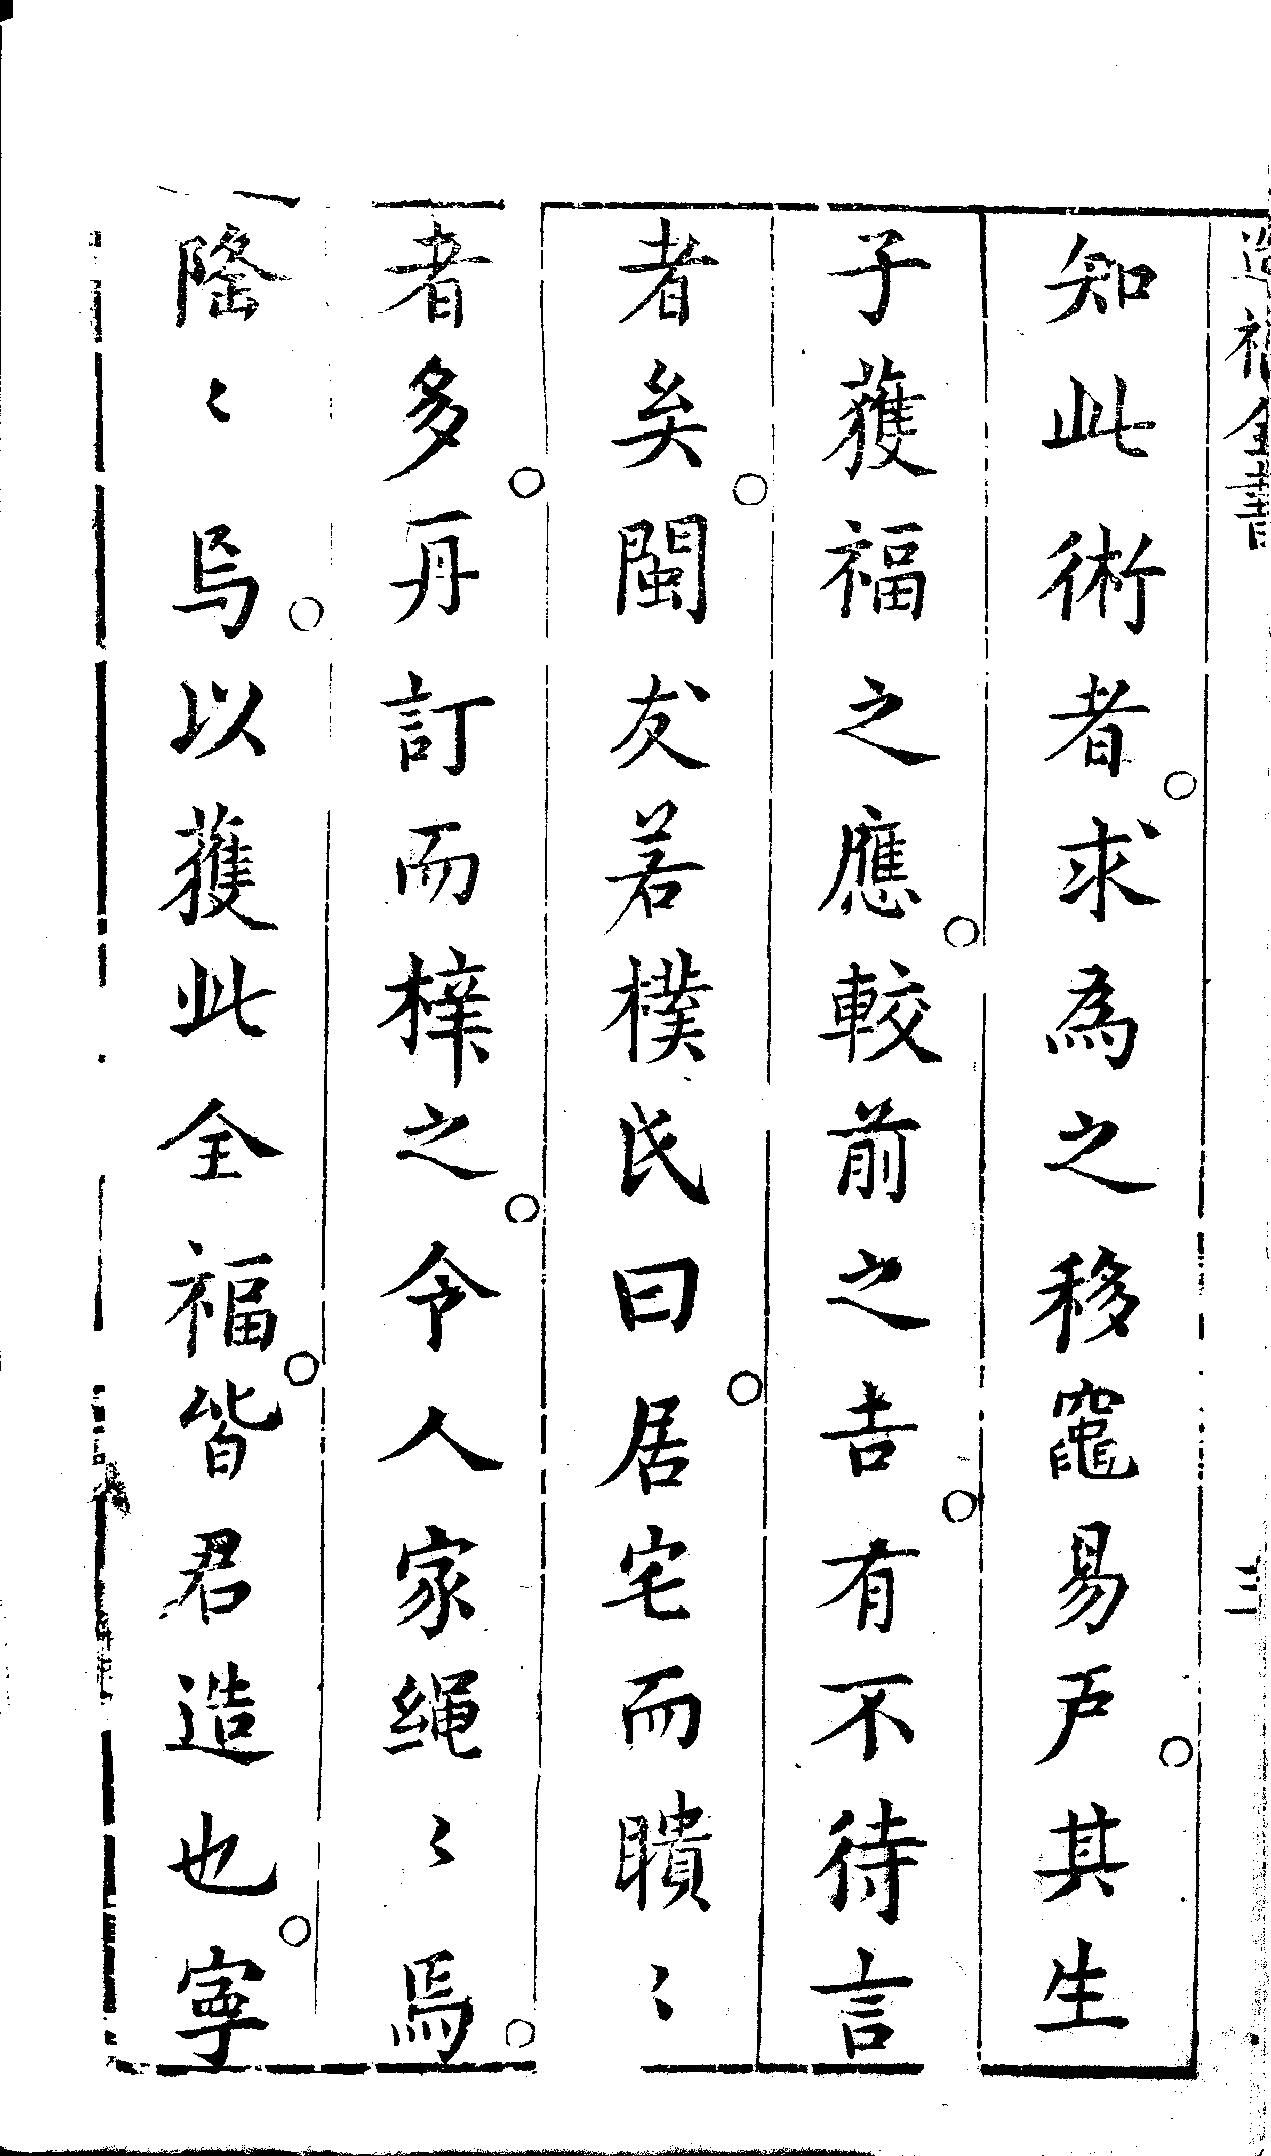 造福全書
三
知此術者求為之移竈易戶其生
子獲福之應較前之吉有不待言
者矣閩友若樸氏曰居宅而瞶〻
者多再訂而梓之令人家绳〻焉
隆〻焉以獲此全福皆君造也寧